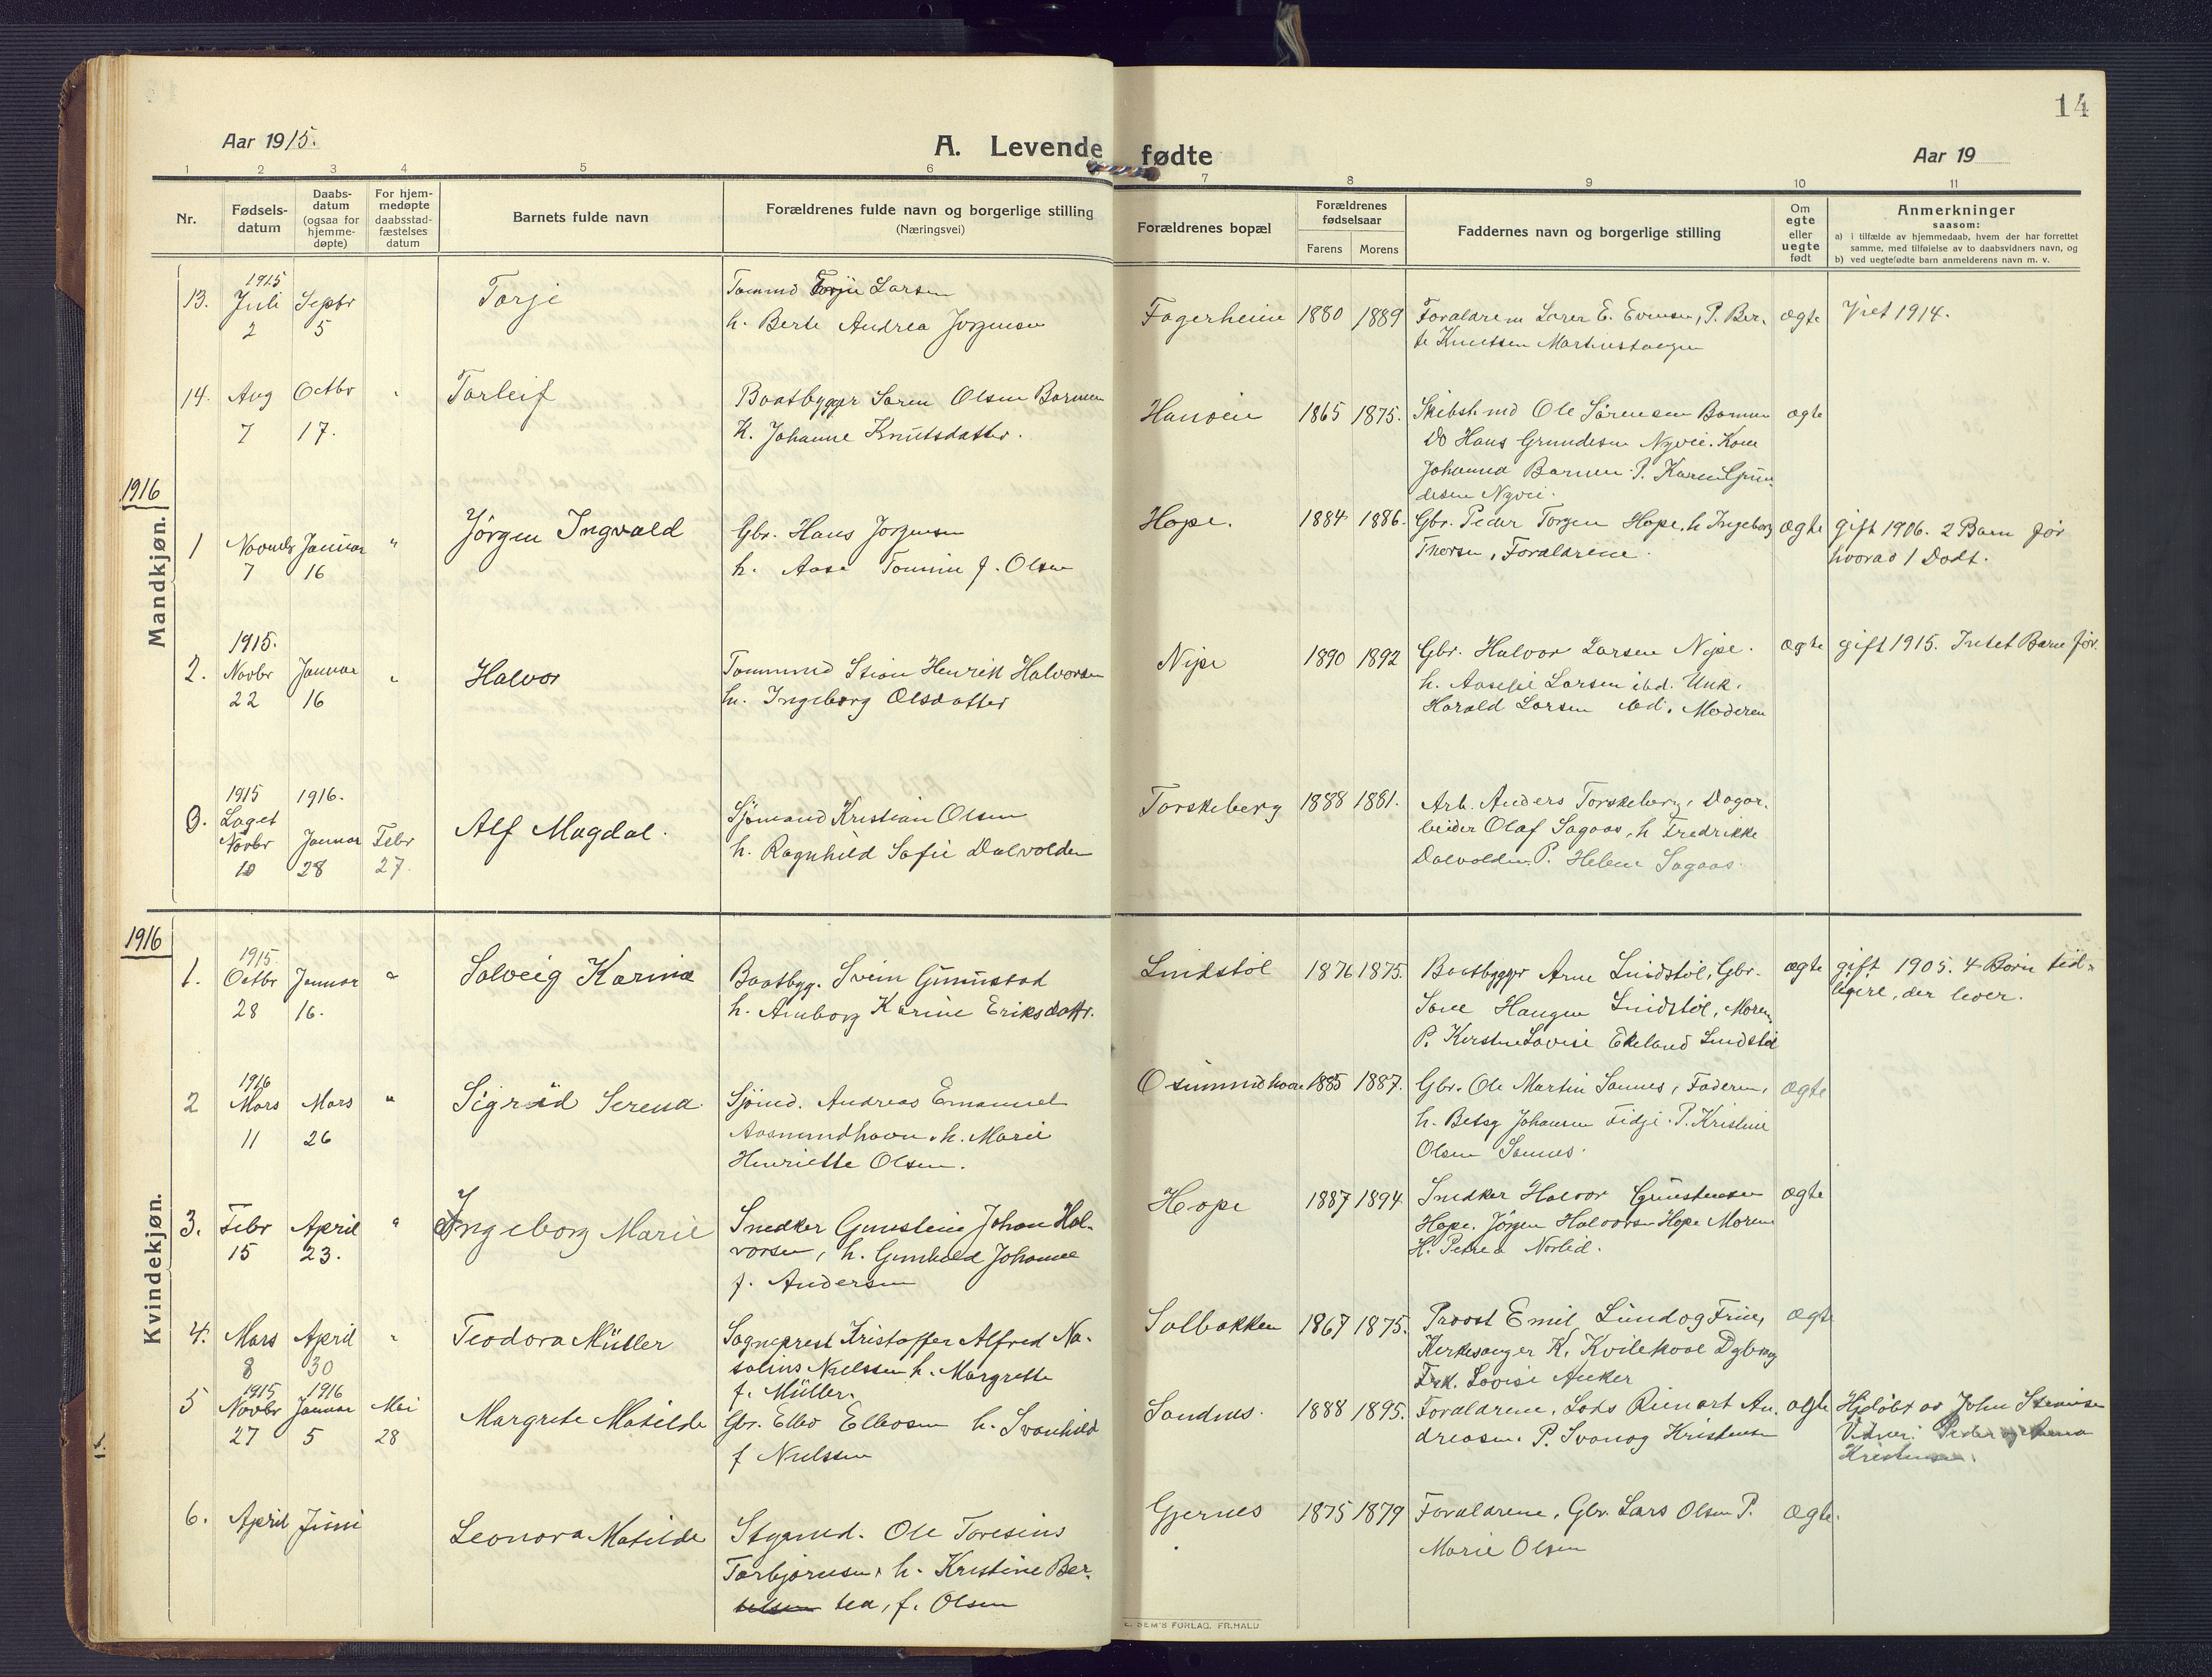 14
Aar 1915.
A. Levende fødte
Aar 19
1 2 3 4 5 6 7 8 9 10 11
Nr.
Fødsels-
datum
Daabs-
datum
(ogsaa for
hjemme-
døpte)
For hjem-
medøpte
daabsstad-
fæstelses
datum
Barnets fulde navn
Forældrenes fulde navn og borgerlige stilling
(Næringsvei)
Forældrenes bopæl
Forældrenes
fødselsaar
Farens Morens
Faddernes navn og borgerlige stilling
Om
egte
eller
uegte
født
Anmerkninger
saasom:
a) i tilfælde av hjemmedaab, hvem der har forrettet
samme, med tilføielse av to daabsvidners navn, og
b) ved uegtefødte barn anmelderens navn m. v.
Mandkjøn.
13.
1915
Juli
2
Septbr
5
Torje
Tømmd Torje Larsen
h. Berte Andrea Jorgensen
Fagerheim
1880 1889
Forældrene Lærer E. Evensen, P. Ber-
te Knutsen
ægte
Viet 1914.
14.
Aug
7
Octbr
17.
"
Tarleif
Baatbygger Søren Olsen Barmen
K. Johanne Knutsdatter.
1865 1875.
Ole Sørensen Barmen
Do Hans Grundesen Nyvei. Kone
Johanna Barmen. P. Karen Grun-
desen Nyvei.
ægte
1916
1
Novembr
7
Januar
16
"
Jörgen Ingvald
Gbr. Hans Jorgensen
h. Aase Tomine f. Olsen
Hope.
1884 1886.
Gbr. Peder Torgen Hope, h Ingeborg
Thorsen, Forældrene.
ægte
gift 1906. 2 Barn før
hvorav 1 Dødt.
2.
1915.
Novbr
22
Januar
16
"
Halvor
Tømmmd Stian Henrik Halvorsen
h. Ingeborg Olsdatter
Nipe
1890 1892
Gbr. Halvor Larsen Nipe.
h. Aasefie Larsen ibd. Unk.
Harald Larsen ibd. Moderen
ægte
gift 1915. Intet Barn før.
3.
1915
Laget
Novbr
10
1916.
Januar
28
Febr
27
Alf Magdal.
Sjömand Kristian Olsen
h. Ragnhild Sofie Dalvolden
Torskeberg
1888 1881.
Arb. Anders Torskeberg, Dagar-
beider Olaf Sagaas, h Fredrikke
Dalvolden. P. Helene Sagaas.
Kvindekjøn.
1916
1.
1915.
Octbr
28
Januar
16.
"
Solveig Karina
Baatbyg. Svein Gunnustad
h. Amborg Karine Eriksdattr.
Lindstöl
1876 1875.
Baatbygger Arne Lindstöl, Gbr.
Haugen Lindstöl, Moren,
P. Kirstine Lovise Ekeland Lindstöl
ægte
gift 1905. 4 Børn tid-
ligere, der lever.
2
1916
Mars
11
Mars
26
"
Sigrid Serena
Sjömd. Andreas Emanuel
Aasmundhavn. h. Marie
Henriette Olsen.
Osmundhavn
1885 1887.
Gbr. Ole Martin Sannes, Faderen,
h. Betsy Johansen Fidje. P. Kristine
Olsen Sannes.
ægte
3.
Febr
15
April
23.
"
Ingeborg Marie
Snedker Gunstein Johan Hal-
vorsen, h. Gunhild Johanne
f. Andersen
Hope
1887 1894.
Snedker Halvor Gunstensen
Hope. Jörgen Halvorsen Hope Moren
H. Petrea Norlid.
ægte
4.
Mars
8
April
30
"
Teodora Müller
Sogneprest Kristoffer Alfred Na-
talius Nielssen h. Margrethe
f. Müller.
Solbakken
1867 1875.
Provst Emil Lund og Frue,
Kirkesanger K. Kvilehaae Dybvaag
Frk. Lovise Anker
ægte
5
1915
Novbr
27
1916
Januar
5
Mai
28
Margrete Matilde
Gbr. Ellev Ellevsen h. Svanhild
f Nielssen
Sandnes.
1888 1895.
Forældrene, Lods Reinart An-
dreasen. P. Svanaug Kristensen
ægte
Hjdöbt av John
Vidner: Peder og
Kristensen.
6.
April
Juni
Leonora Matilde
Styrmd. Ole Toresius
Torbjörnsen, h. Kristine Ber-
tea, f. Olsen
Gjernes
1875 1879
Forældrene, Gbr. Lars Olsen P.
Marie Olsen
ægte.
15
E. SEM'S FORLAG. FR.HALD